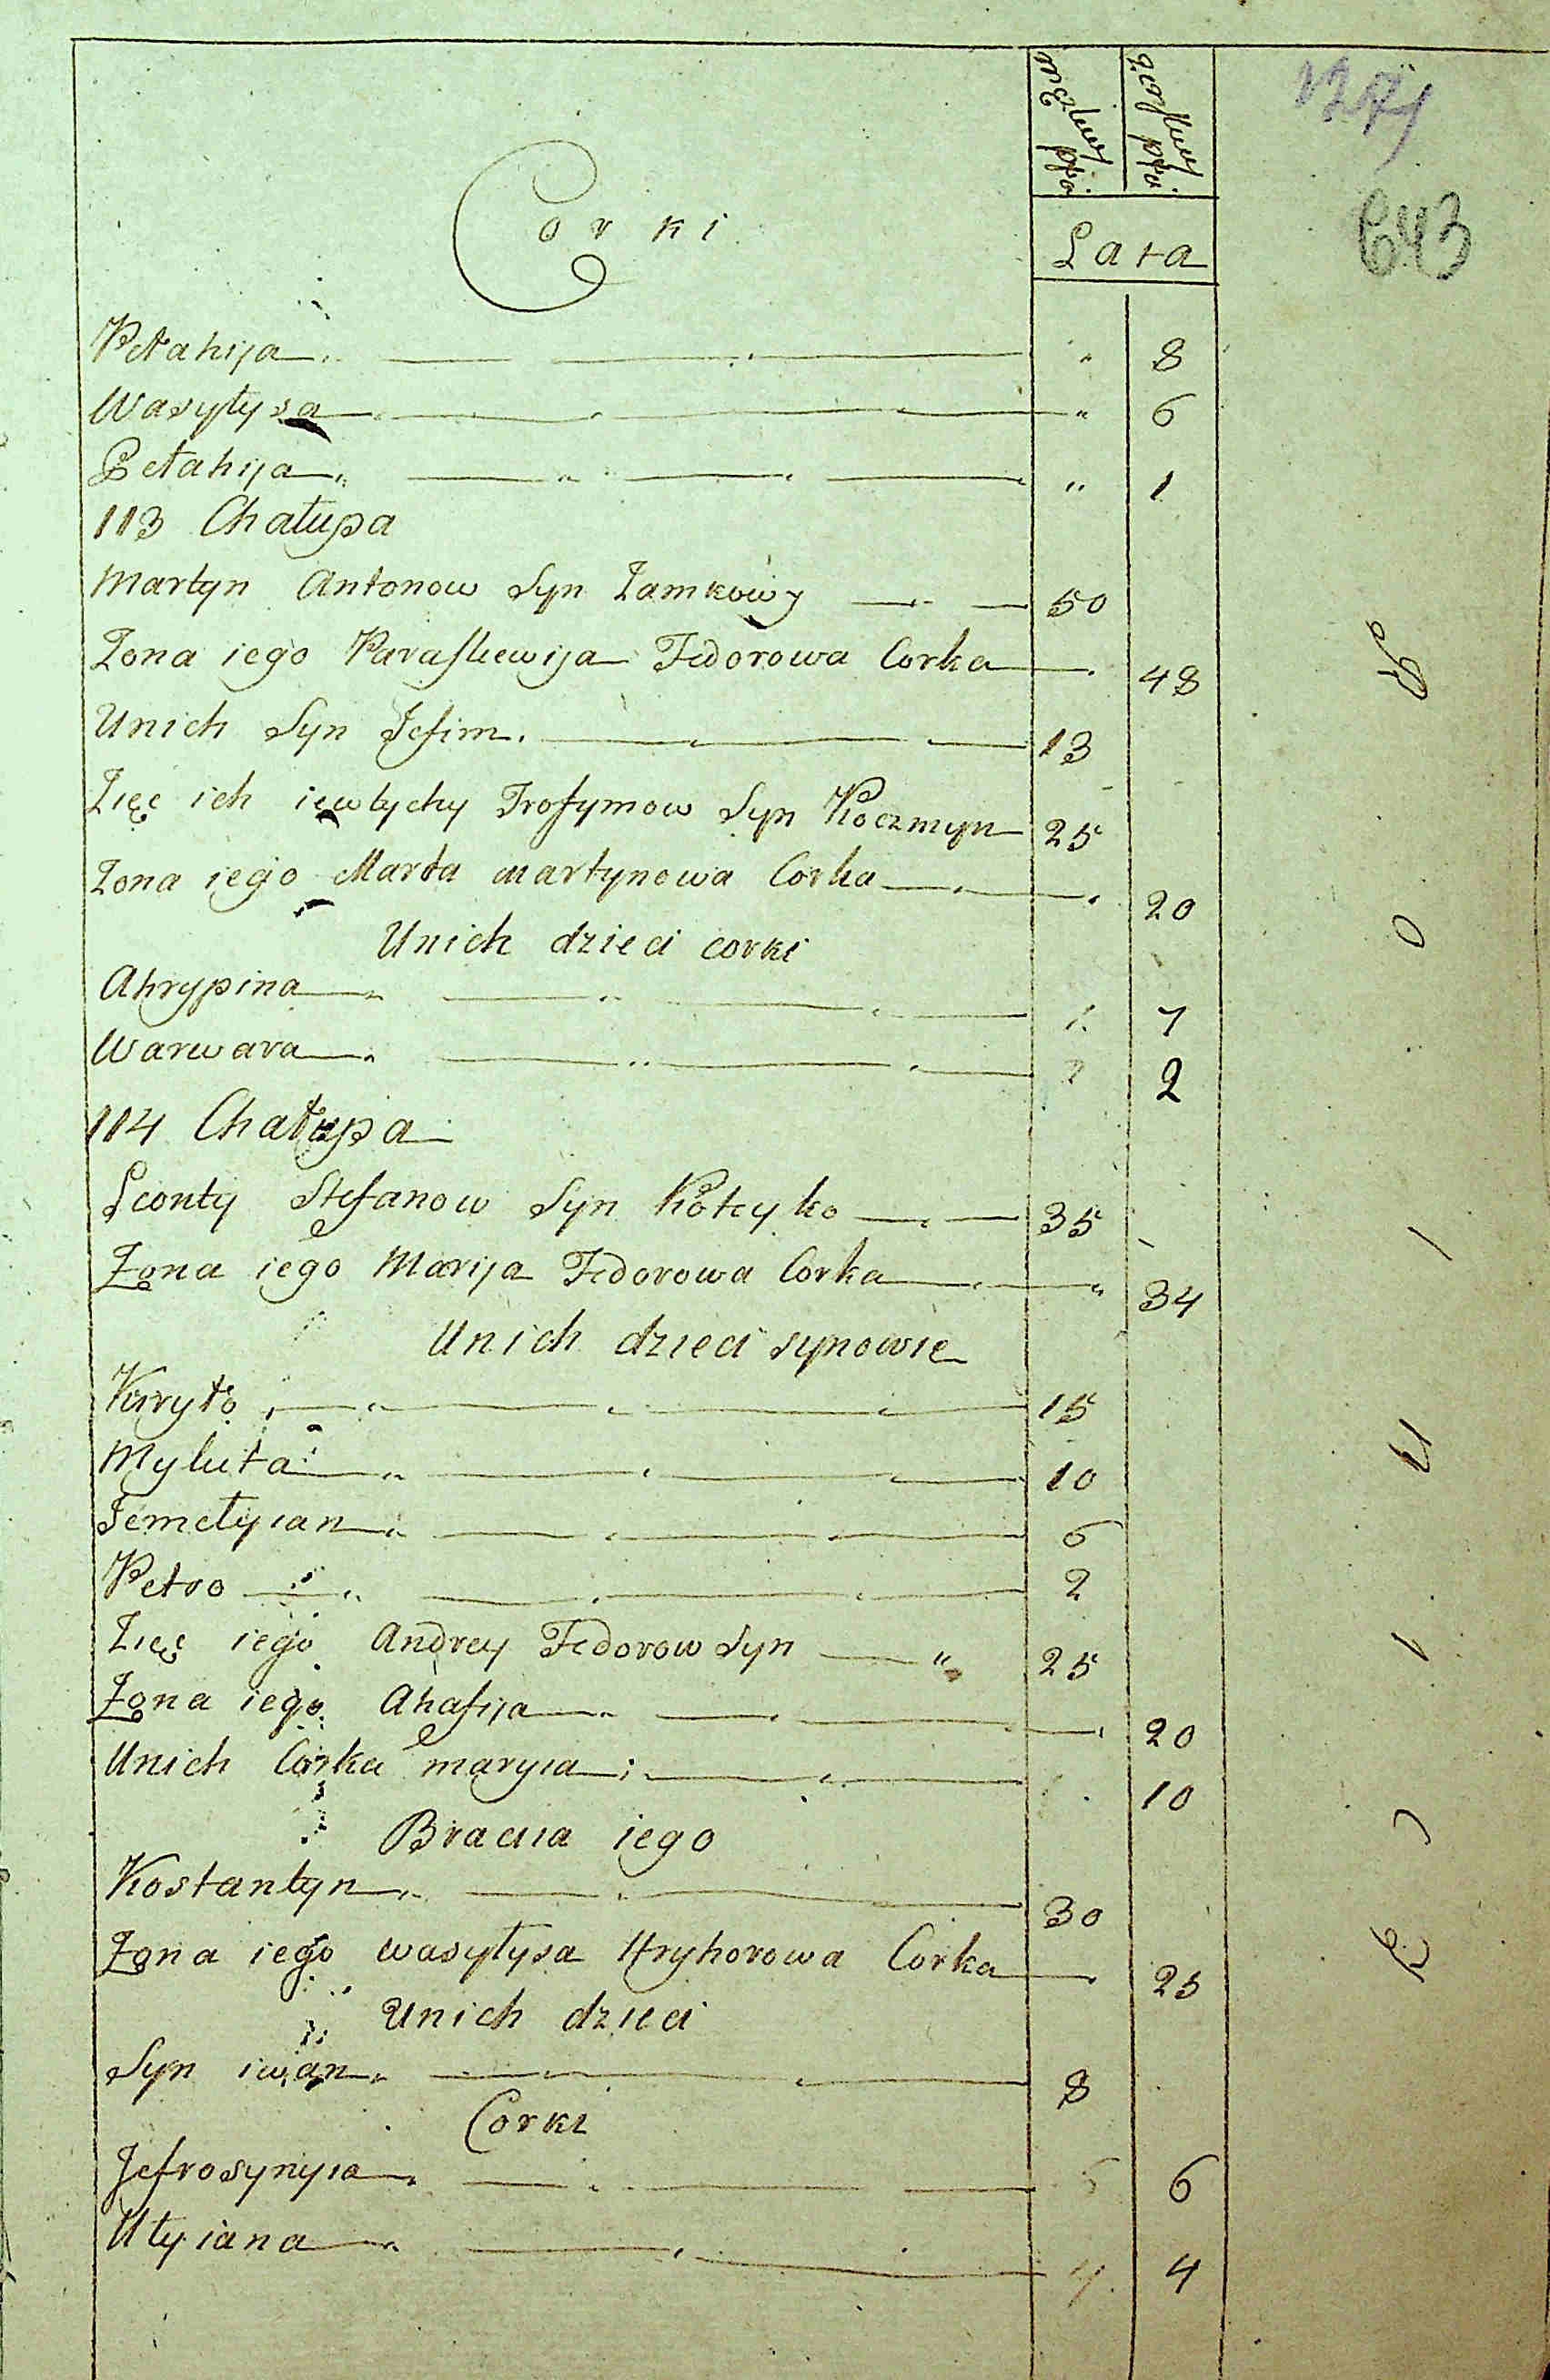 męzkiey płci
żeńskiey płci
1274
643
Corki
Lata
Pełahija " 8
Wasyłysa " 6
Pełahija " 1
113 Chałupa
Martyn Antonow Syn Zamkowy 50
Zona iego Paraskewija Fedorowa Corka 48
Unich Syn Jefim 13
Zięć ich iewtychy Trofymow Syn Koczmyn 25
Zona iego Marta martynowa Corka 20
Unich dzieci corki
Ahrypina 7
Warwara 2
114 Chałupa
Leonty Stefanow Syn Kołcyko 35
Zona iego Marija Fedorowa Corka " 34
Unich dzieci synowie
Kiryło 15
Mykita 10
Jemełyian 6
Petro 2
Zięć iego Andrey Fedorow Syn " 25
Zona iego Ahafija 20
Unich Corka maryia 10
Bracia iego
Kostantyn 30
Zona iego wasyłysa Hryhorowa Corka 25
Unich dzieci
Syn iwan 8
Corki
Jefrosynyia 6
Ulyiana 4